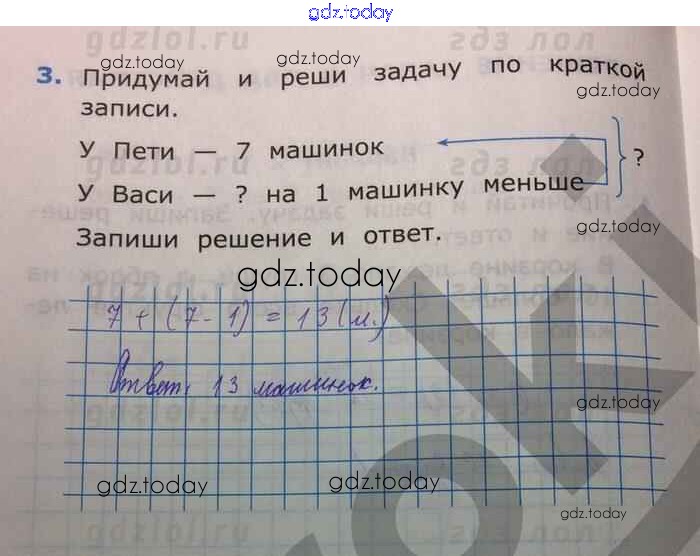 gdz.today
gdzlol.ru
gdz.today
3. Придумай и реши задачу по краткой
gdz.today
записи.
У Пети — 7 машинок
?
У Васи — ? на 1 машинку меньше
Запиши решение и ответ.
gdz.today
7 + (7 - 1) = 13 (м.)
Ответ: 13 машинок.
gdz.today
gdz.today
gdz.today
gdz.today